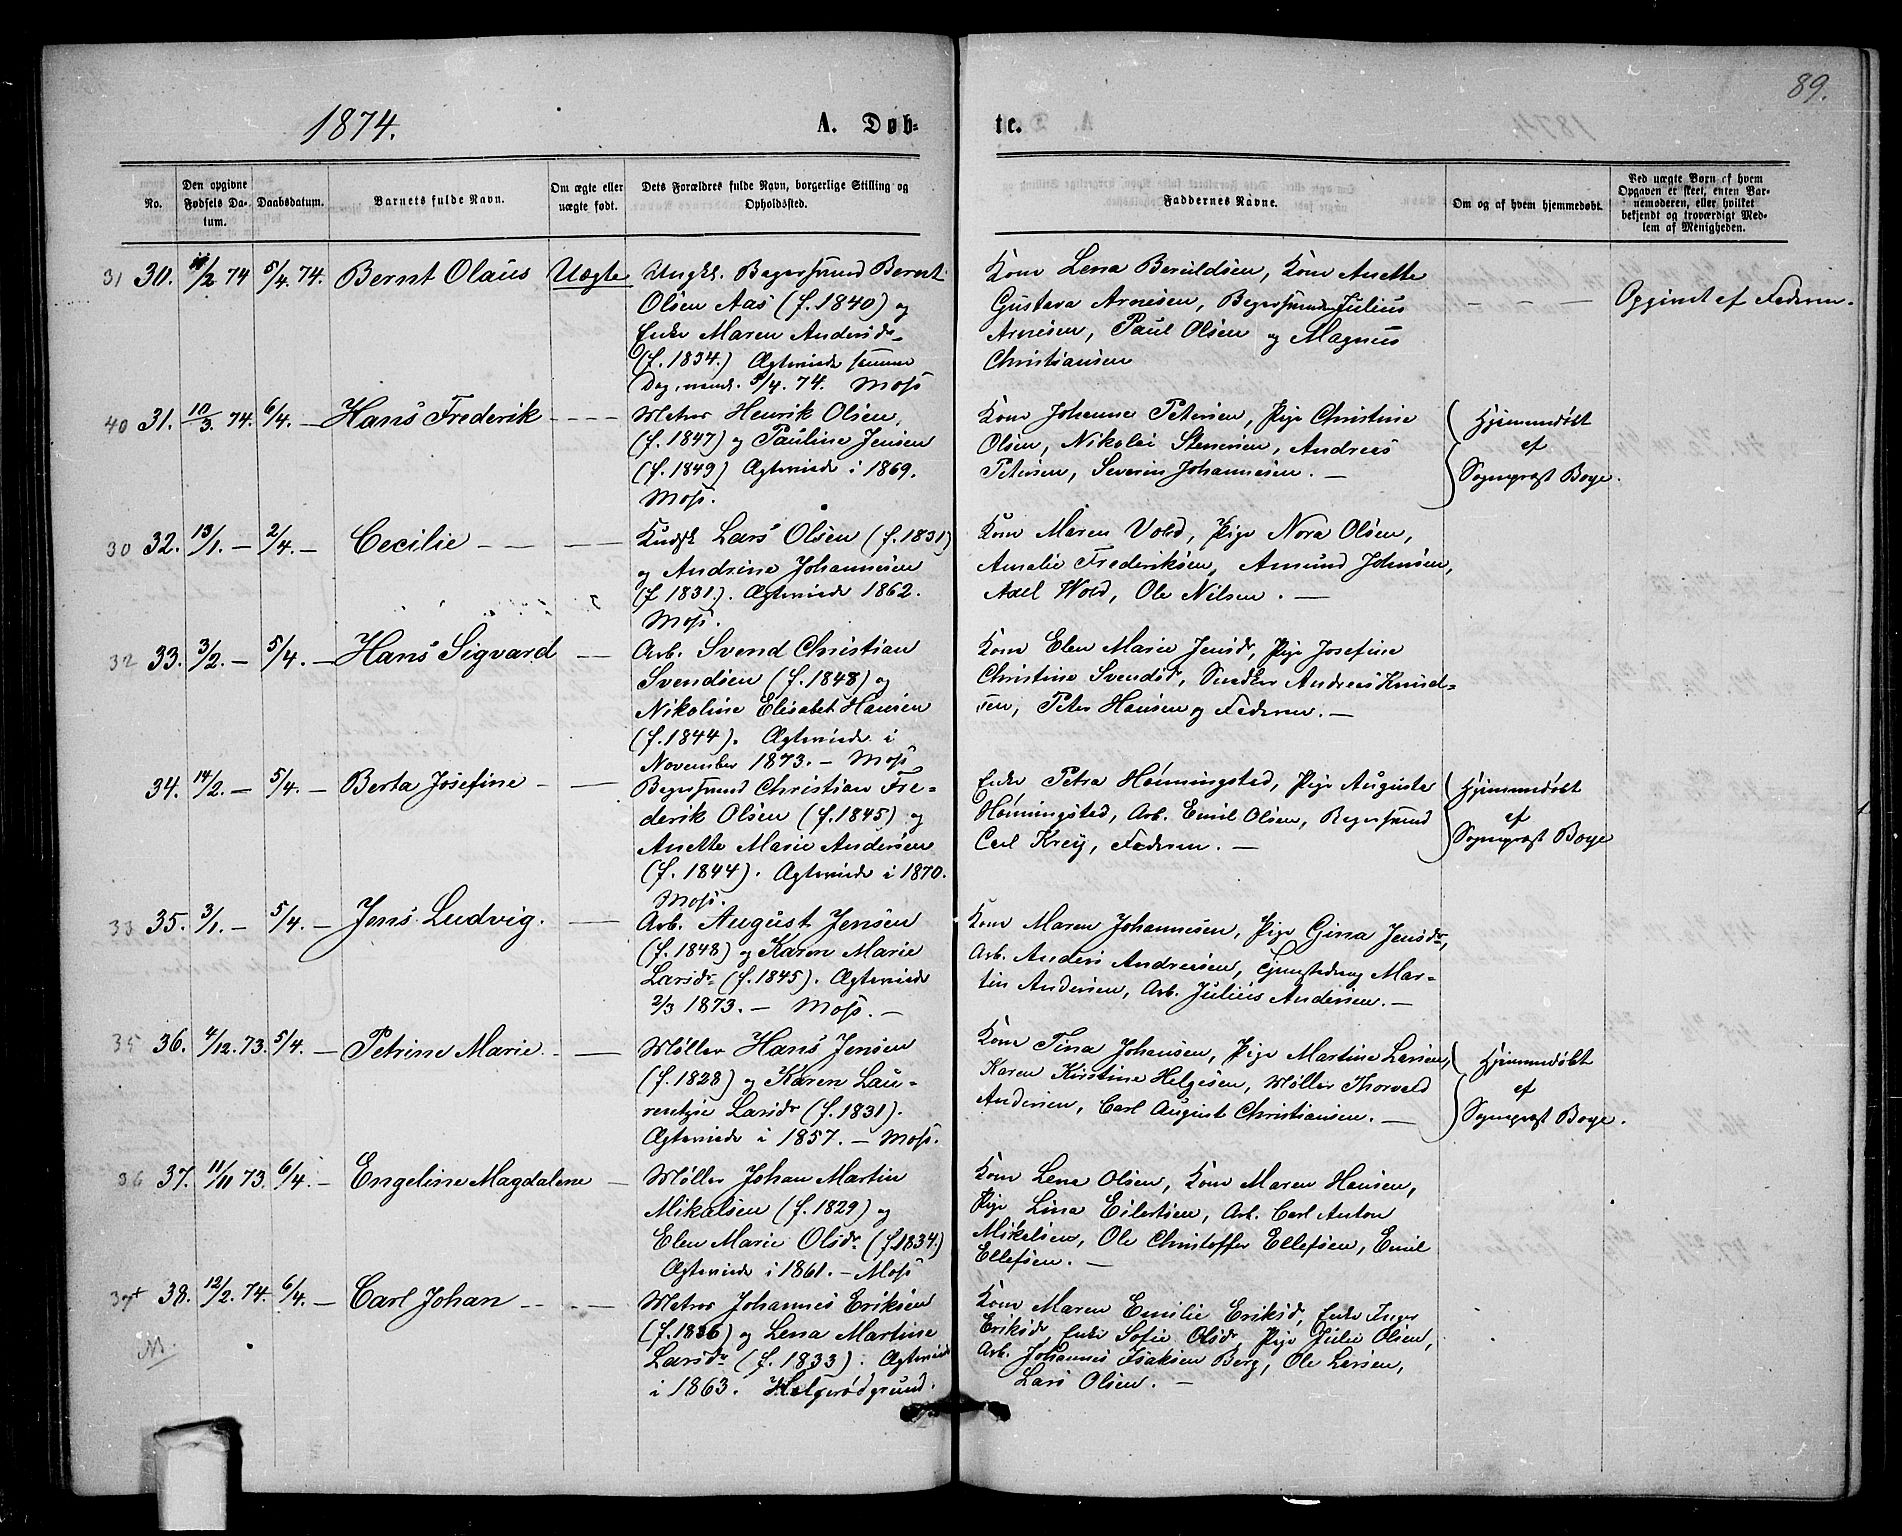 89.
1874.
A. Døb-
te.
No.
Den opgivne Fødsels Da-tum.
Daabsdatum.
Barnets fulde Navn.
Om ægte eller uægte født.
Dets Forældres fulde Navn, borgerlige Stilling og Opholdssted.
Faddernes Navne.
Om og af hvem hjemmedøbt.
Ved uægte Børn af hvem Opgaven er skeet, enten Bar-nemoderen, eller hvilket bekjendt og troværdigt Med-lem af Menigheden.
31 30. /2 74 5/4. 74. Bernt Olaus Uægte
Ungkl. Bernt
Olsen Aas (f. 1840) og
Enke Maren Andersdr
(f. 1834.) Ægteviede samme
Dag, 5/4. 74. Moss
Kone Lena Beruldsen, Kone Anette
Gustava Arnesen, Julius
Arnesen, Paul Olsen og Magnus
Christiansen
— — —
Opgivet af Faderen.
40 31. 10/3. 74. 6/4. — Hans Frederik — — —
Matros Henrik Olsen,
(f. 1847) og Pauline Jensen
(f. 1849) Ægteviede i 1869.
Moss.
Kone Johanne Petersen, Pige Christine
Olsen, Nikolai Stenersen, Andreas
Petersen, Severin Johannesen. —
Hjemmedøbt
af
Sogneprest Boye.
30 32. 13/1. — 2/4. — Cecilie — — —
Kudsk Lars Olsen (f. 1831)
og Andrine Johannesen
(f 1831). Ægteviede 1862.
Moss.
Kone Maren Vold, Pige Nora Olsen,
Amalie Frederiksen, Amund Johnsen,
Axel Wold, Ole Nilsen. —
32 33. 3/2. — 5/4. — Hans Sigvard —
Arb. Svend Christian
Svendsen (f. 1848) og
Nikoline Elisabet Hansen
(f. 1844). Ægteviede i
November 1873. — Moss
Kone Elen Marie Jensdr, Pige Josefine
Christine Svendsdr, Andreas Knud-
sen, Peter Hansen og Faderen. —
34. 14/2. — 5/4. — Berta Josefine — —
Christian Fre-
derik Olsen (f. 1845) og
Anette Marie Andersen
(f. 1844). Ægteviede i 1870.
Moss.
Enke Petra Hønningstad, Pige Augusta
Hønningstad, Arb. Emil Olsen,
Carl Krey, Faderen. —
Hjemmedøbt
af
Sogneprest Boye
33 35. 3/1. — 5/4. — Jens Ludvig. —
Arb. August Jensen
(f. 1848) og Karen Marie
Larsdr (f. 1845). Ægteviede
2/3 1873. — Moss. —
Kone Maren Johannesen, Pige Gina Jensdr,
Arb. Anders Andreasen, Mar-
tin Andersen, Arb. Julius Andersen. —
35 36. 4/12. 73. 5/4. — Petrine Marie. — —
Møller Hans Jensen
(f. 1828) og Karen Lau-
rentzie Larsdr (f. 1831).
Ægteviede i 1857. — Moss.
Kone Tina Johansen, Pige Martine Larsen,
Karen Kirstine Helgesen, Møller Thorvald
Andersen, Carl August Christiansen. —
Hjemmedøbt
af
Sogneprest Boye.
36 37. 11/11 73. 6/4. — Engeline Magdalene —
Møller Johan Martin
Mikalsen (f. 1829) og
Elen Marie Olsdr (f. 1834.)
Ægteviede i 1861. — Moss
Kone Lena Olsen, Kone Maren Hansen,
Pige Lina Eilertsen, Arb. Carl Anton
Mikalsen, Ole Christoffer Ellefsen, Emil
Ellefsen. —
37+ 38. 12/2. 74. 6/4. — Carl Johan — — —
Matros Johannes Eriksen
(f. 1836) og Lena Martine
Larsdr (f. 1833). Ægteviede
i 1863. Helgerødgrund.
Kone Maren Emilie Eriksdr, Enke Inger
Eriksdr, Enke Sofie Olsdr, Pige Julie Olsen,
Arb. Johannes Isaksen Berg, Ole Larsen,
Lars Olsen. —